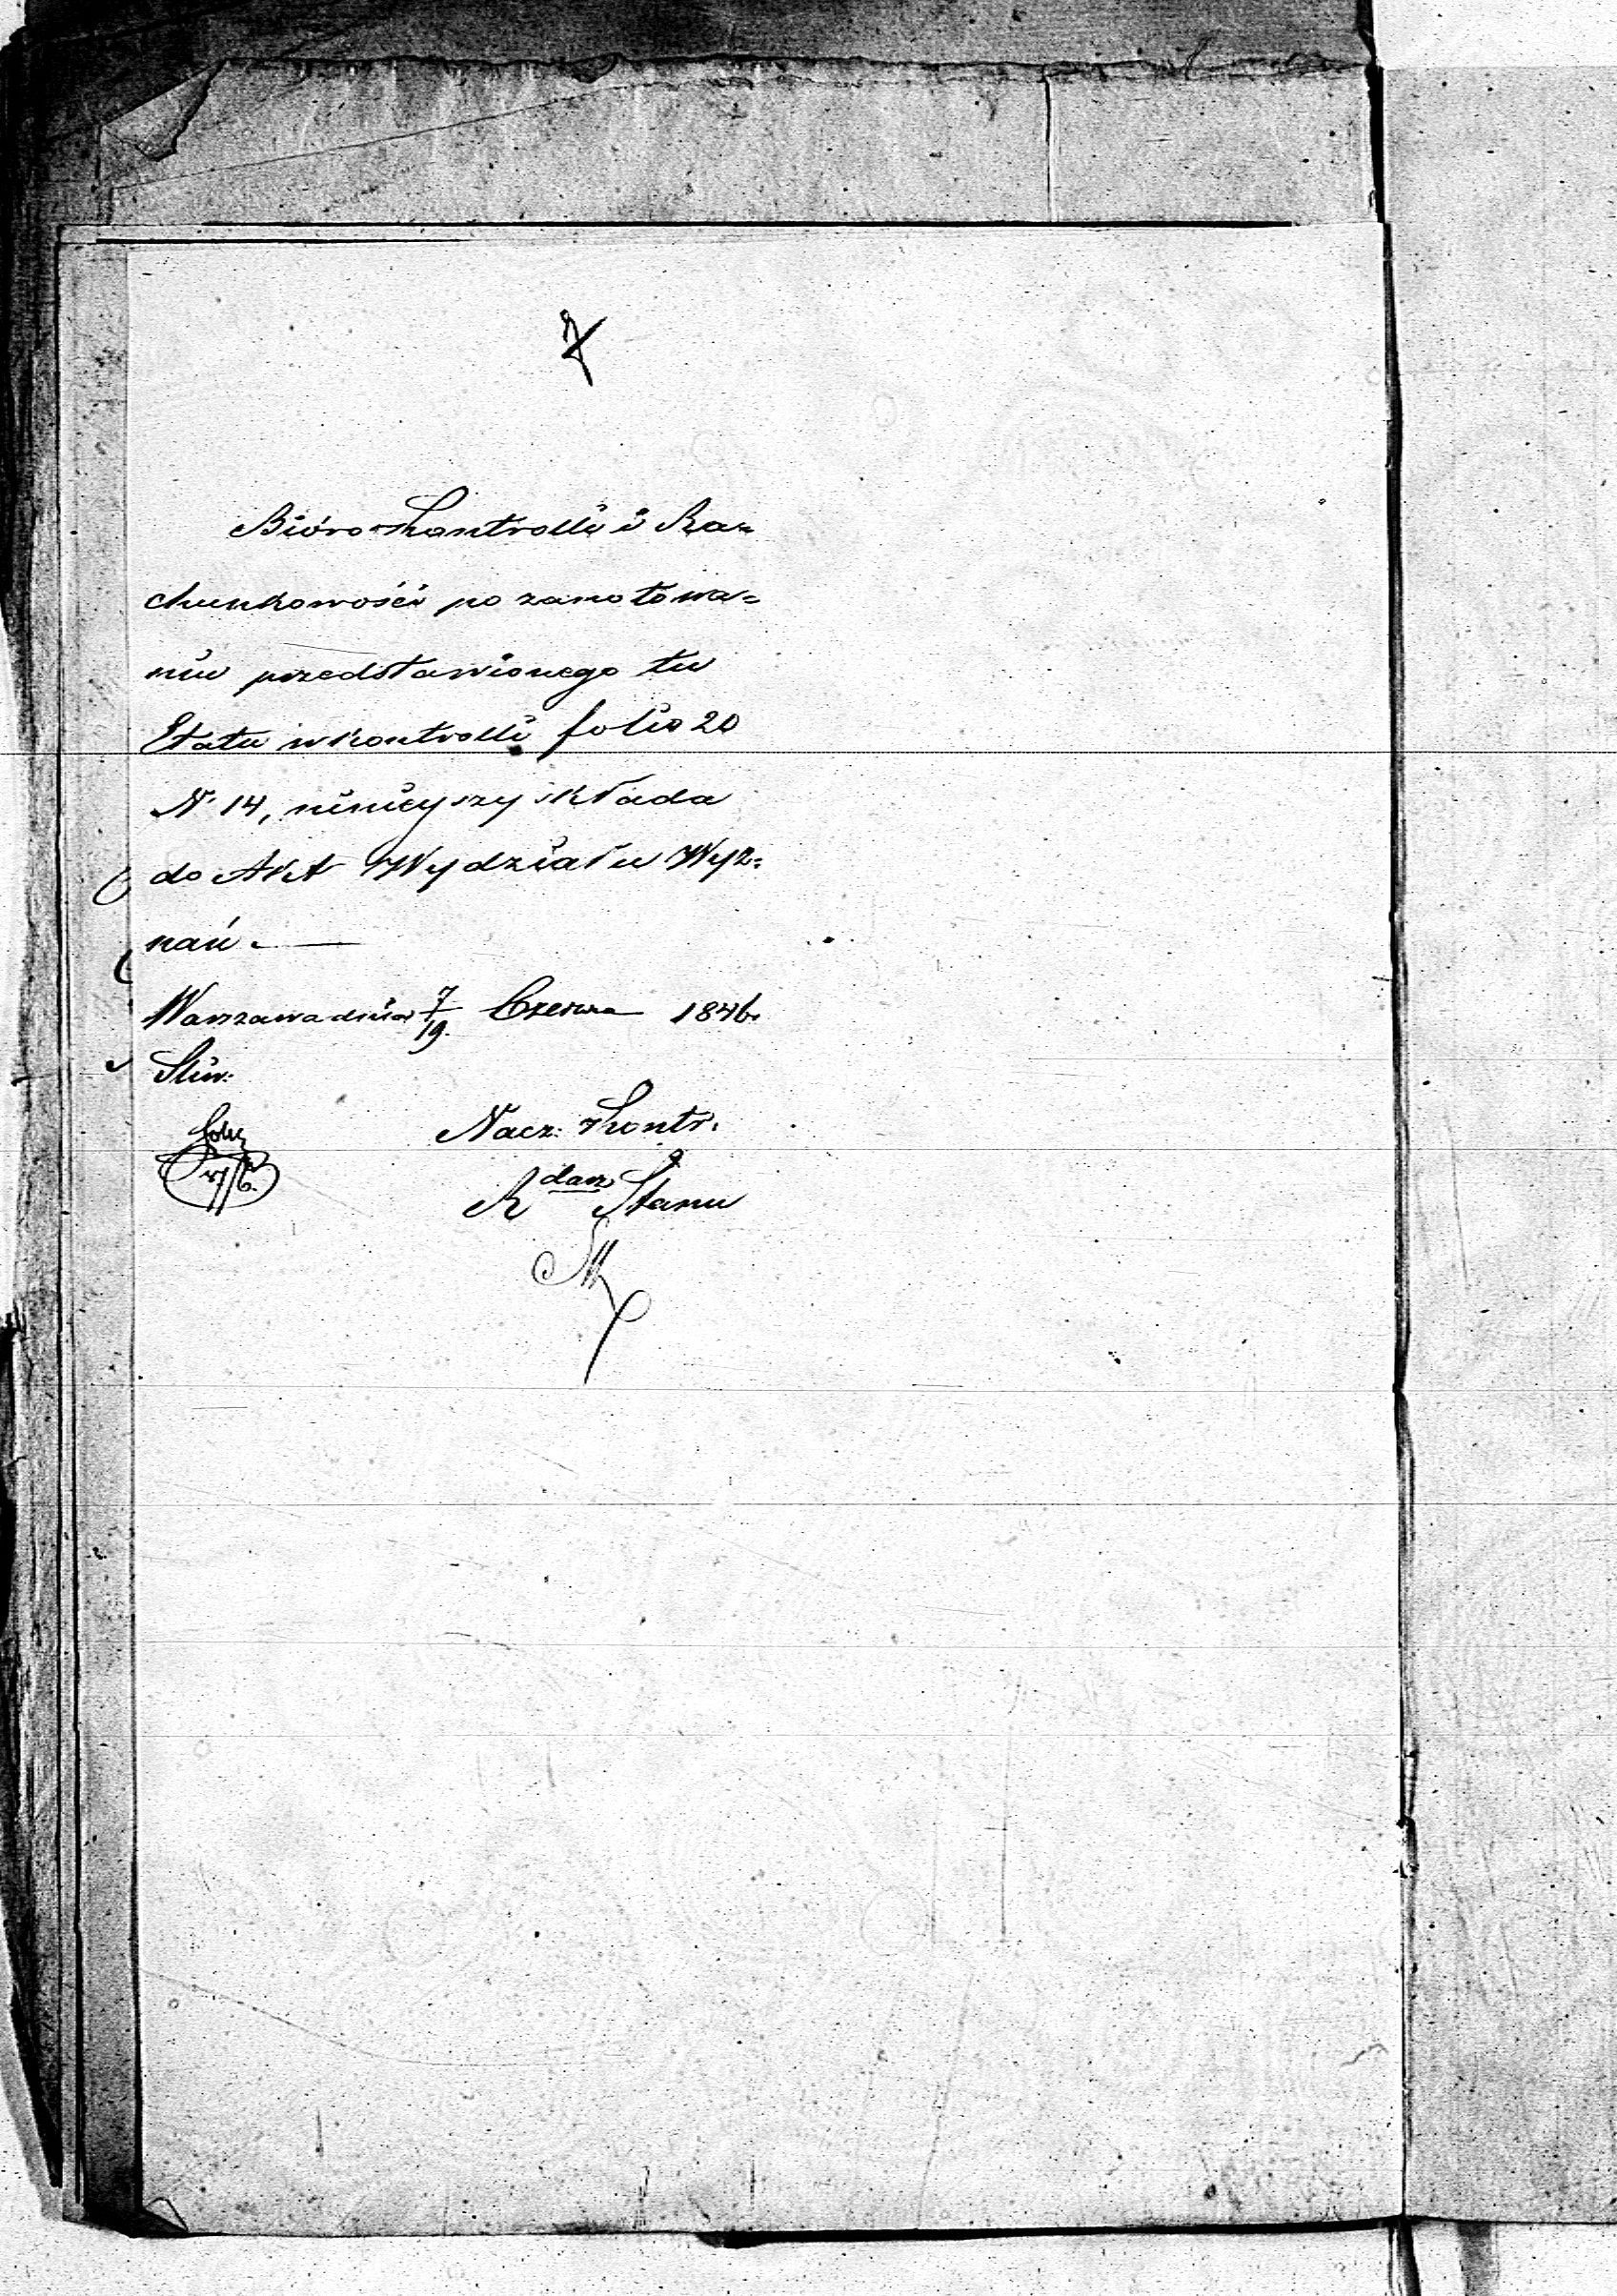 Bióro Kontrolli i Ra=
chunkowości po zanotowa=
niu przedstawionego tu
Etatu w kontrolli folio 20
N. 14, niniejszy składa
do Akt Wydziału Wyz=
nań. —
Warszawa dnia 7/19. Czerwca 1846.
Sliw:
Nacz: Kontr.
R dca Stanu